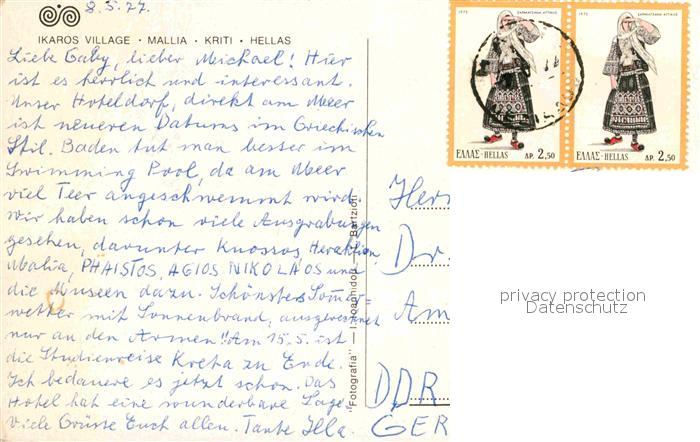 8.5.77.
IKAROS VILLAGE • MALLIA • KRITI • HELLAS
Liebe Gaby, lieber Michael! Hier
ist es herrlich und interessant.
Unser Hoteldorf, direkt am Meer
ist neueren Datums im Griechischen
Stil. Baden tut man besser im
Swimming Pool, da am Meer
viel Teer angeschwemmt wird.
Wir haben schon viele Ausgrabungen
gesehen, darunter Knossos, Heraklion,
Malia, PHAISTOS, AGIOS NIKOLAOS und
die Museen dazu. Schönstes Sommer=
wetter mit Sonnenbrand, ausgerechnet
nur an den Armen!! Am 15.5. ist
die Studienreise Kreta zu Ende.
Ich bedauere es jetzt schon. Das
Hotel hat eine wunderbare Lage.
Viele Grüsse Euch allen. Tante Illa.
"Fotografia" — I. Ioannidou — T. Bartzioti
1972
ΣΑΡΑΚΑΤΣΑΝΑ ΑΤΤΙΚΗΣ
ΕΛΛΑΣ-HELLAS ΔΡ. 2,50
1972
ΣΑΡΑΚΑΤΣΑΝΑ ΑΤΤΙΚΗΣ
ΕΛΛΑΣ-HELLAS ΔΡ. 2,50
Herr
Dr.
Am
DDR
GER
privacy protection
Datenschutz